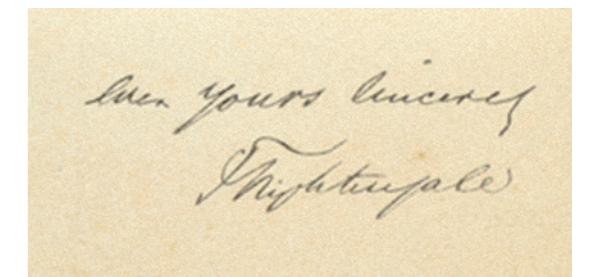 ever yours sincerely
FNightingale